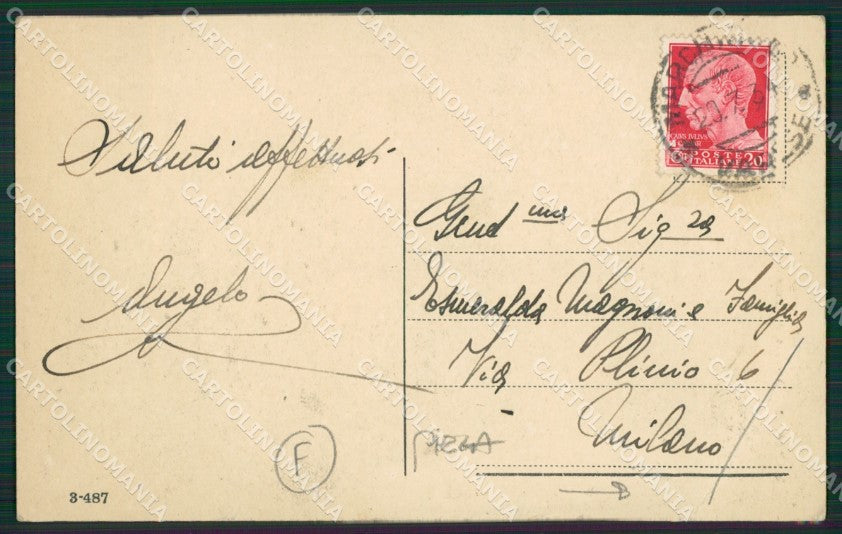 Saluti affettuosi
Angelo
Gent ma Sig ra
Esmeralda Magnoni e Famiglia
Via Plinio 6
Milano
F
3-487
CAIVS IVLIVS
POSTE
ITALIANE
20
CARTOLINOMANIA